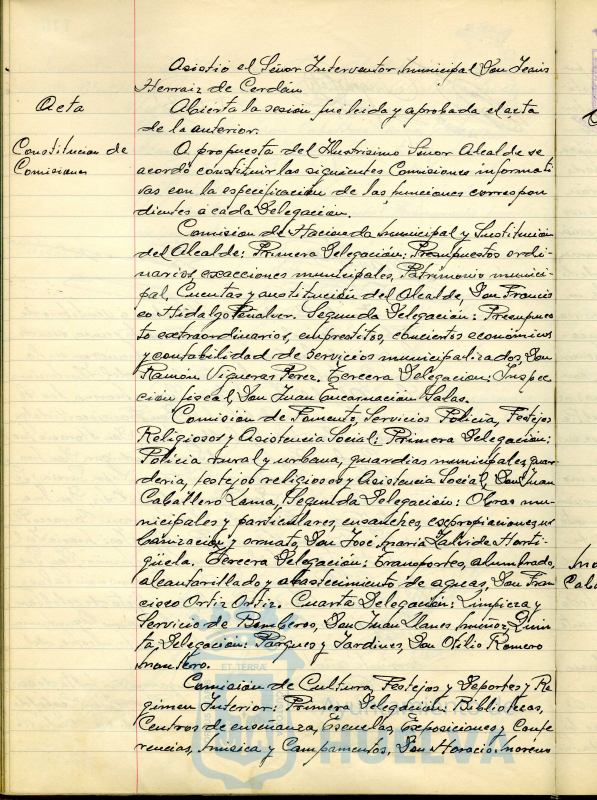 Asistió el Señor Interventor Municipal Don Jesús
Herraiz de Cerdán
Acta
Abierta la sesión fue leida y aprobada el acta
de la anterior.
Constitucion de
Comisiones
A propuesta del Ilustrisimo Señor Alcalde se
acordó constituir las siguientes Comisiones informati
vas con la especificación de las funciones correspon
dientes a cada Delegación.
Comision de Hacienda Municipal y Sustitución
del Alcalde: Primera Delegación: Presupuestos ordi-
narios, exacciones municipales, Patrimonio munici-
pal, Cuentas y sustitución del Alcalde, Don Francis
co Hidalgo Peñalver. Segunda Delegación: Presupues
to extraordinarios, emprestitos, conciertos económicos
y contabilidad de servicios municipalizados, Don
Ramón Vigueras Perez. Tercera Delegación: Inspec
ción fiscal, Don Juan Encarnación Salas.
Comisión de Fomento, Servicios Policía, Festejos
Religiosos y Asistencia Social: Primera Delegación:
Policia rural y urbana, guardias municipales, guar
deria, festejos religiosos y Asistencia Social, Don Juan
Caballero Lama, Segunda Delegación: Obras mu-
nicipales y particulares, ensanches, expropiaciones, ur
banización y ornato, Don José Maria Zalvide Horti-
güela. Tercera Delegación: Transportes, alumbrado,
alcantarillado y abastecimiento de aguas, Don Fran
cisco Ortiz Ortiz. Cuarta Delegación: Limpieza y
Servicio de Bomberos, Don Juan Llanes Muñoz, Quin
ta, Delegación: Parques y Jardines, Don Otilio Romero
Montero.
Comisión de Cultura, Festejos y Deportes y Re
gimen Interior: Primera Delegación: Bibliotecas,
Centros de enseñanza, Escuelas, Exposiciones y Confe
rencias, Música y Campamentos, Don Horacio Moreno
ET TERRÆ
HUELVA